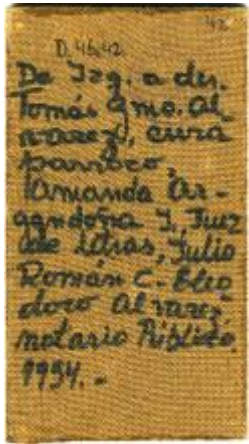 D. 46.42
De Izq. a der.
Tomás Gmo. Al
varez, cura
parroco,
Amanda Ar-
gandoña J., Juez
de letras, Julio
Román C. - Eleo
doro Alvarez
notario Público
1954. -